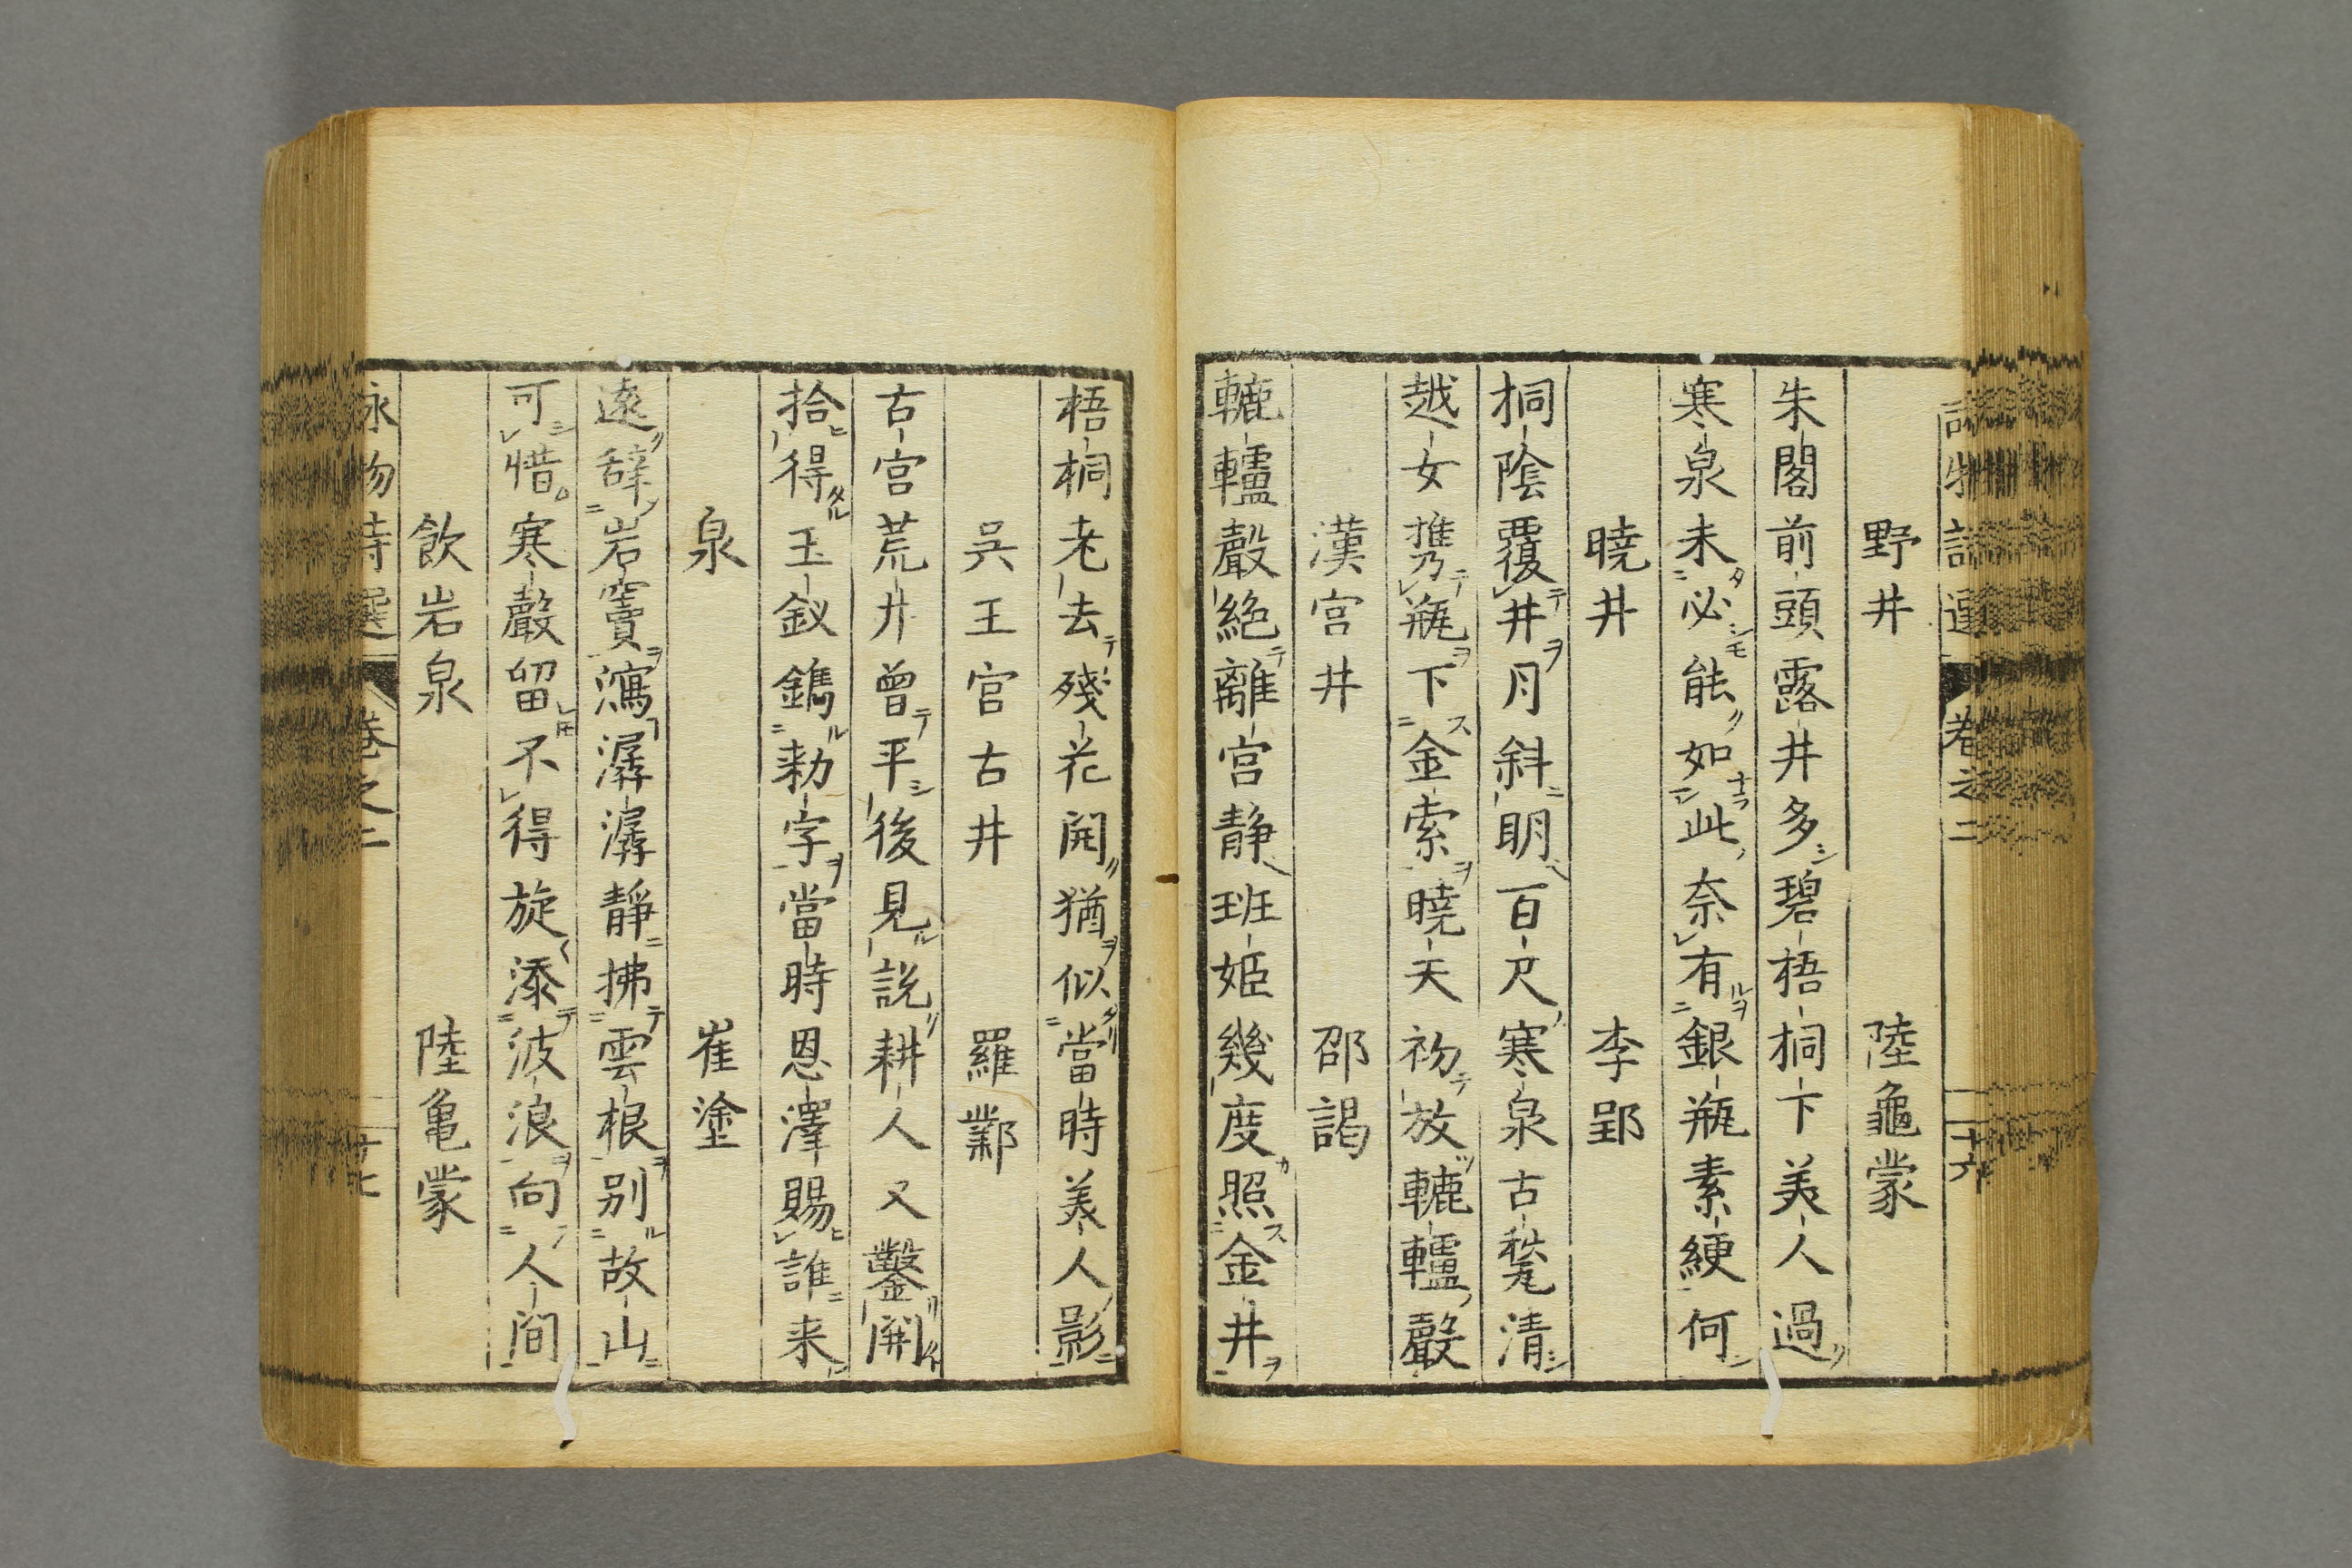 野井 陸龜蒙
朱閣前頭露井多碧梧桐下美人過
寒泉未必能如此奈有銀瓶素綆何
曉井 李郢
桐陰覆井月斜明百尺寒泉古甃清
越女携瓶下金索曉天初放轆轤聲
漢宮井 邵謁
轆轤聲絶離宮静班姬幾度照金井
梧桐老去殘花開猶似當時美人影
吳王宮古井 羅鄴
古宮荒井曾平後見說耕人又鑿開
拾得玉釵鐫勅字當時恩澤賜誰来
泉 崔塗
遠辞岩竇瀉潺潺靜拂雲根别故山
可惜寒聲留不得旋添波浪向人間
飲岩泉 陸亀蒙
詠物詩選 卷之二 十七